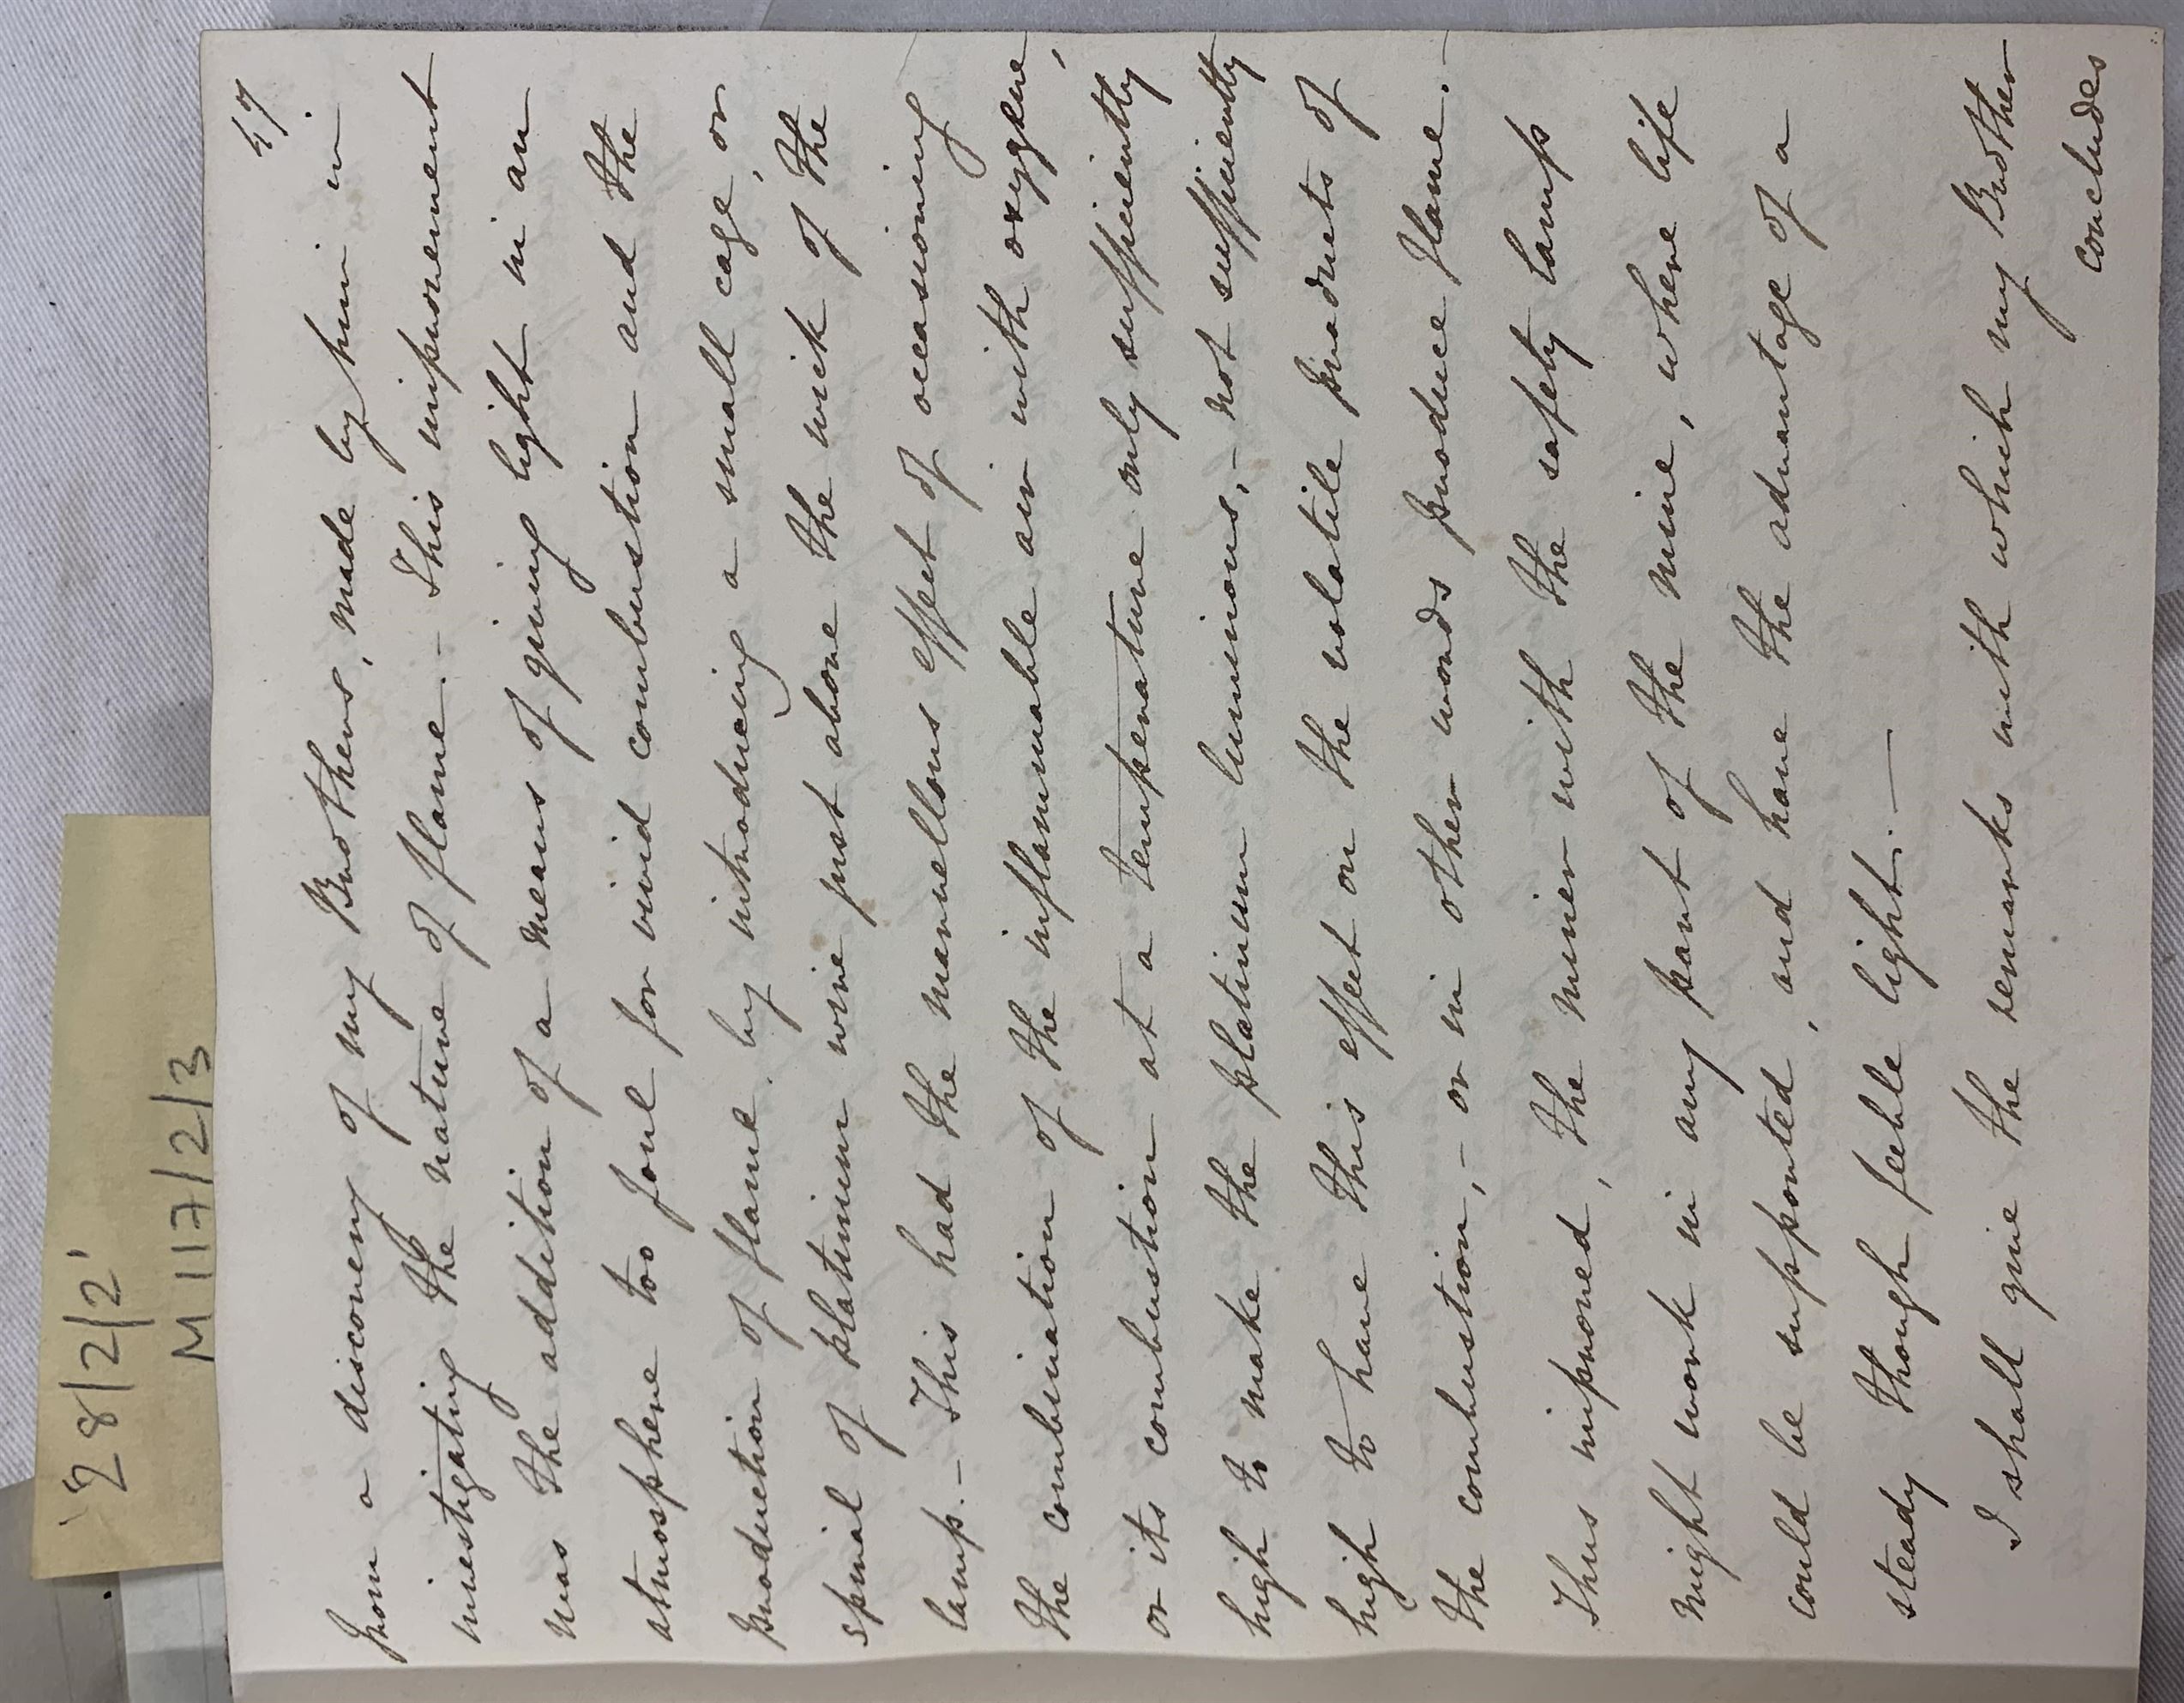 '28/2/2'
M117/2/3
57.
from a discovery of my Brothers, made by him in
investigating the nature of flame. - This improvement
was the addition of a means of giving light in an
atmosphere too foul for vivid combustion and the
production of flame. by introducing a small cage, or
spiral of platinum wire just above the wick of the
lamp. - This had the marvellous effect of occasioning
the combination of the inflammable air with oxygene,
or its combustion at a temperature only sufficiently
high to make the platinum luminous, - not sufficiently
high to have this effect on the volatile products of
the combustion, - or in other words produce flame. -
Thus improved, the miner with the safety lamp
might work in any part of the mine, where life
could be supported, and have the advantage of a
steady though feeble light. -
I shall give the remarks with which my Brother
concludes